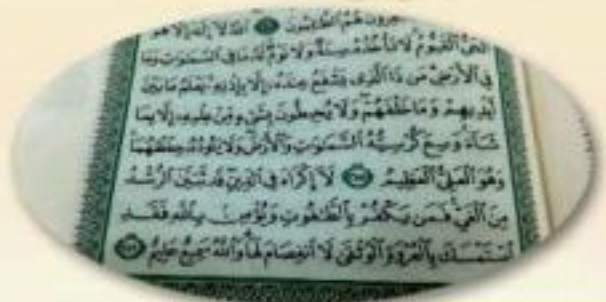 هُمُ ٱلظَّٰلِمُونَ ٱللَّهُ لَآ إِلَٰهَ إِلَّا هُوَ
ٱلْحَىُّ ٱلْقَيُّومُ لَا تَأْخُذُهُۥ سِنَةٌ وَلَا نَوْمٌ لَّهُۥ مَا فِى ٱلسَّمَٰوَٰتِ وَمَا
فِى ٱلْأَرْضِ مَن ذَا ٱلَّذِى يَشْفَعُ عِندَهُۥٓ إِلَّا بِإِذْنِهِۦ يَعْلَمُ مَا بَيْنَ
أَيْدِيهِمْ وَمَا خَلْفَهُمْ وَلَا يُحِيطُونَ بِشَىْءٍ مِّنْ عِلْمِهِۦٓ إِلَّا بِمَا
شَآءَ وَسِعَ كُرْسِيُّهُ ٱلسَّمَٰوَٰتِ وَٱلْأَرْضَ وَلَا يَـُٔودُهُۥ حِفْظُهُمَا
وَهُوَ ٱلْعَلِىُّ ٱلْعَظِيمُ ٢٥٥ لَآ إِكْرَاهَ فِى ٱلدِّينِ قَد تَّبَيَّنَ ٱلرُّشْدُ
مِنَ ٱلْغَىِّ فَمَن يَكْفُرْ بِٱلطَّٰغُوتِ وَيُؤْمِنۢ بِٱللَّهِ فَقَدِ
ٱسْتَمْسَكَ بِٱلْعُرْوَةِ ٱلْوُثْقَىٰ لَا ٱنفِصَامَ لَهَا وَٱللَّهُ سَمِيعٌ عَلِيمٌ